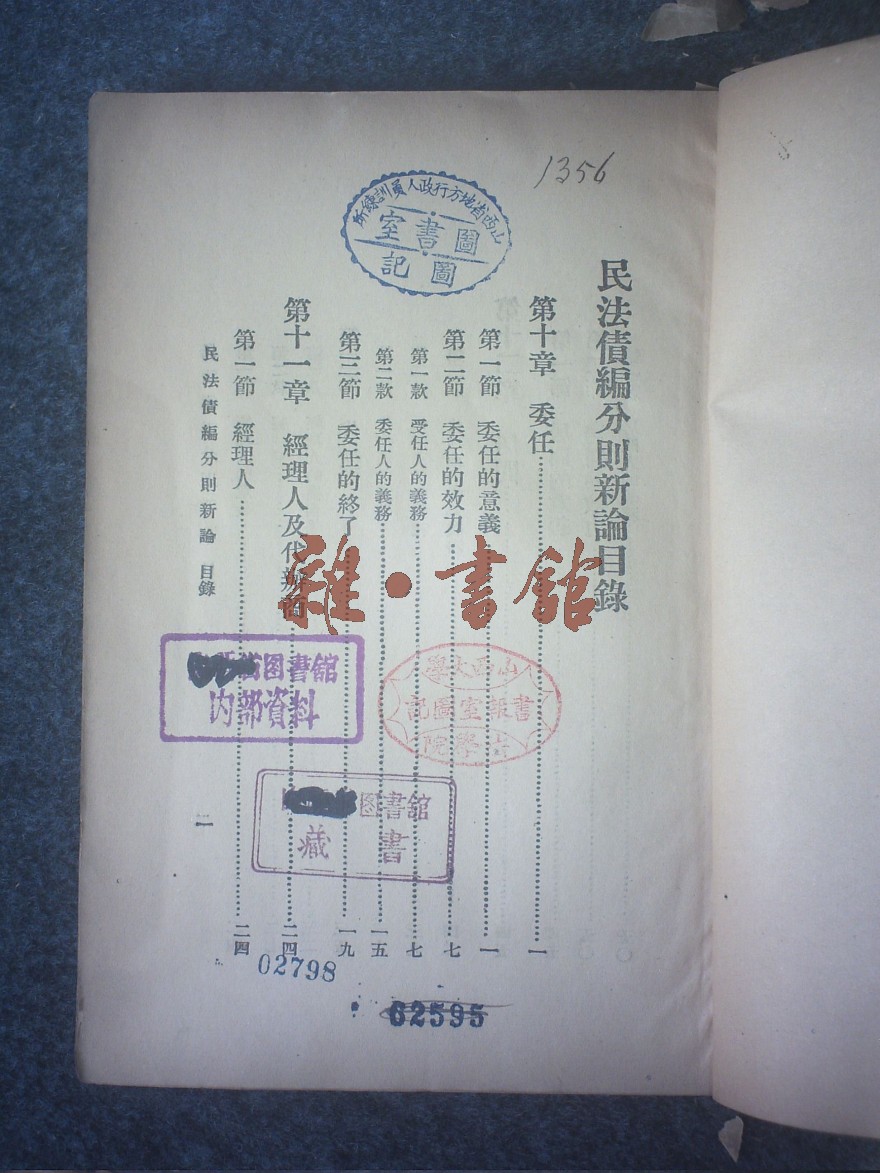 1356
山西省地方行政人員訓練所
圖書室
圖記
民法債編分則新論目錄
第十章　委任……一
第一節　委任的意義……一
第二節　委任的效力……七
第一款　受任人的義務……七
第二款　委任人的義務……一五
第三節　委任的終了……一九
第十一章　經理人及代辦商……二四
第一節　經理人……二四
民法債編分則新論　目錄
一
雜·書館
图書舘
内部資料
山西大學
書報室圖記
學院
图書舘
藏書
02798
62595